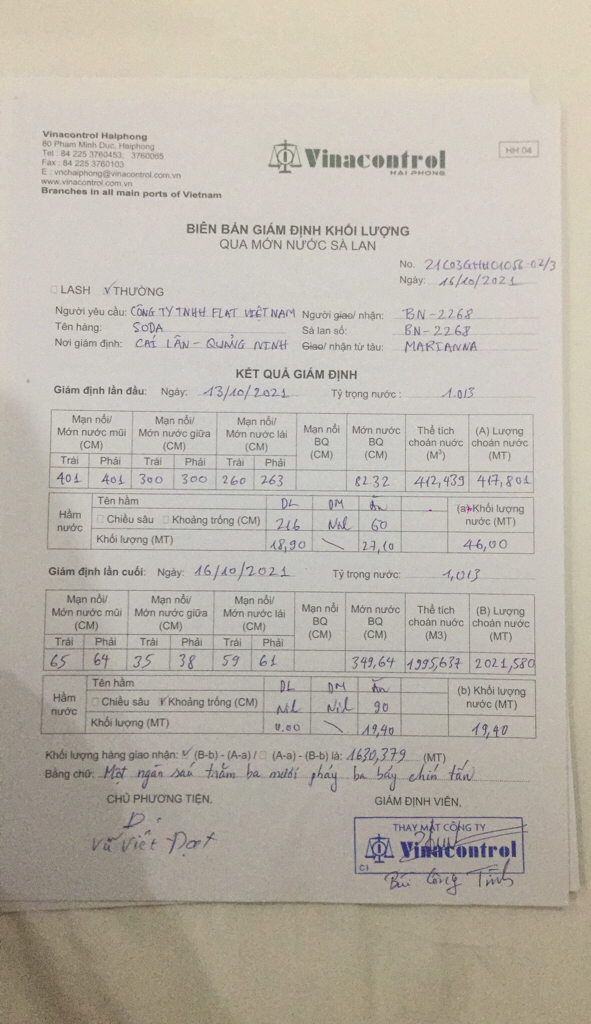 Vinacontrol Haiphong
80 Pham Minh Duc, Haiphong
Tel : 84 225 3760453, 3760065
Fax : 84 225 3760103
E : vnchaiphong@vinacontrol.com.vn
www.vinacontrol.com.vn
Branches in all main ports of Vietnam
Vinacontrol
HAI PHONG
HH 04
BIÊN BẢN GIÁM ĐỊNH KHỐI LƯỢNG
QUA MỚN NƯỚC SÀ LAN
No.
Ngày: 16/10/2021
LASH THƯỜNG
Người yêu cầu: CÔNG TY TNHH FLAT VIỆT NAM Người giao/ nhận: BN-2268
Tên hàng: SODA Sà lan số: BN-2268
Nơi giám định: CÁI LÂN - QUẢNG NINH Giao/ nhận từ tàu: MARIANNA
KẾT QUẢ GIÁM ĐỊNH
Giám định lần đầu: Ngày: 13/10/2021 Tỷ trọng nước : 1.013
Mạn nổi/ Mớn nước mũi (CM) Mạn nổi/ Mớn nước giữa (CM) Mạn nổi/ Mớn nước lái (CM) Mạn nổi BQ (CM) Mớn nước BQ (CM) Thể tích choán nước (M³) (A) Lượng choán nước (MT)
Trái Phải Trái Phải Trái Phải
401 401 300 300 260 263 82.32 412,439 417,801
Hầm nước Tên hầm DL DM Ăn (a) Khối lượng nước (MT)
Chiều sâu Khoảng trống (CM) 216 Nil 60
Khối lượng (MT) 18,90 \ 27,10 46,00
Giám định lần cuối: Ngày: 16/10/2021 Tỷ trọng nước: 1,013
Mạn nổi/ Mớn nước mũi (CM) Mạn nổi/ Mớn nước giữa (CM) Mạn nổi/ Mớn nước lái (CM) Mạn nổi BQ (CM) Mớn nước BQ (CM) Thể tích choán nước (M3) (B) Lượng choán nước (MT)
Trái Phải Trái Phải Trái Phải
65 64 35 38 59 61 349,64 1995,637 2021,580
Hầm nước Tên hầm DL DM Ăn (b) Khối lượng nước (MT)
Chiều sâu Khoảng trống (CM) Nil Nil 90
Khối lượng (MT) 0.00 \ 19,40 19,40
Khối lượng hàng giao nhận: (B-b) - (A-a) / (A-a) - (B-b) là: 1630,379 (MT)
Bằng chữ: Một ngàn sáu trăm ba mươi phẩy ba bảy chín tấn
CHỦ PHƯƠNG TIỆN, GIÁM ĐỊNH VIÊN,
Vũ Viết Đạt
THAY MẶT CÔNG TY
Vinacontrol
C1
Bùi Công Tĩnh